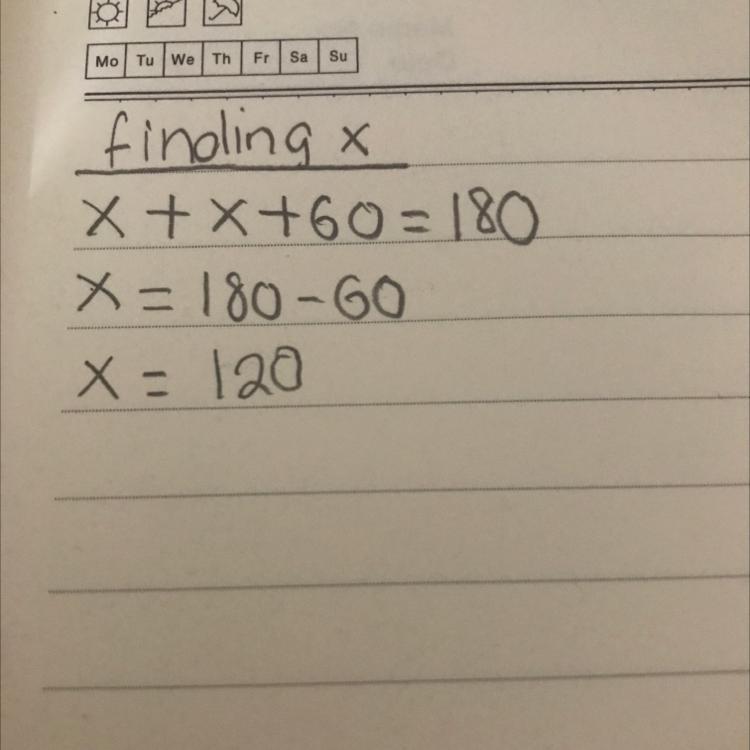 Mo Tu We Th Fr Sa Su
finding x
x + x + 60 = 180
x = 180 - 60
x = 120